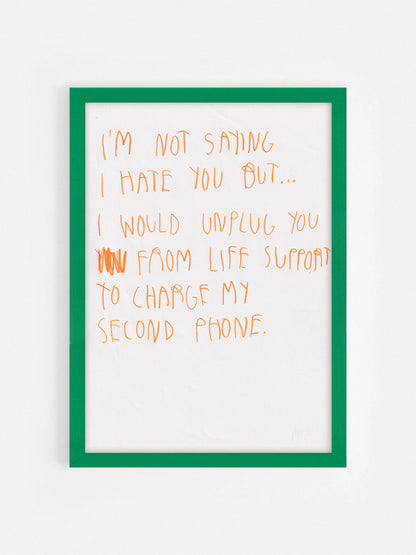 I'M NOT SAYING
I HATE YOU BUT...
I WOULD UNPLUG YOU
FROM LIFE SUPPORT
TO CHARGE MY
SECOND PHONE.